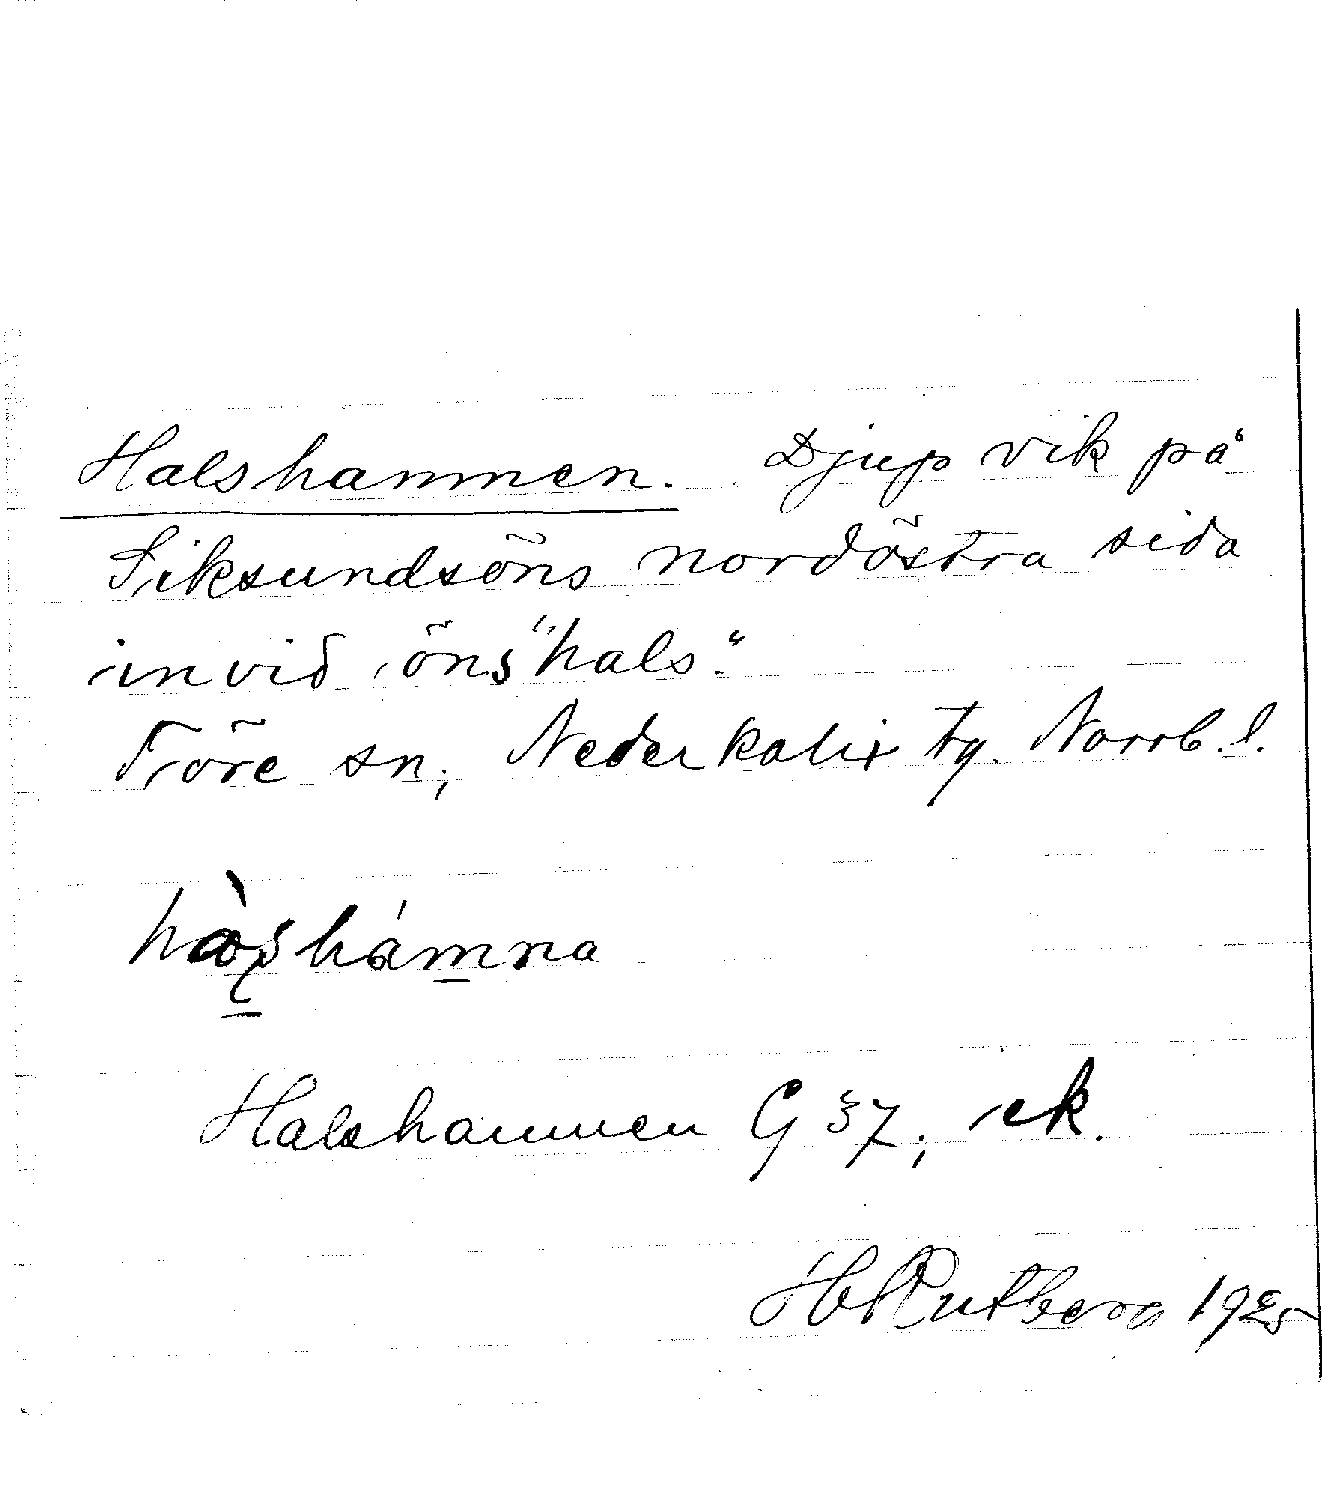 Halshamnen. Djup vik på
Siksundsöns nordöstra sida
invid öns "hals".
Töre sn, Nederkalix tg. Norrb. l.
Halshamnen G 37, ek.
H Rutberg 1925